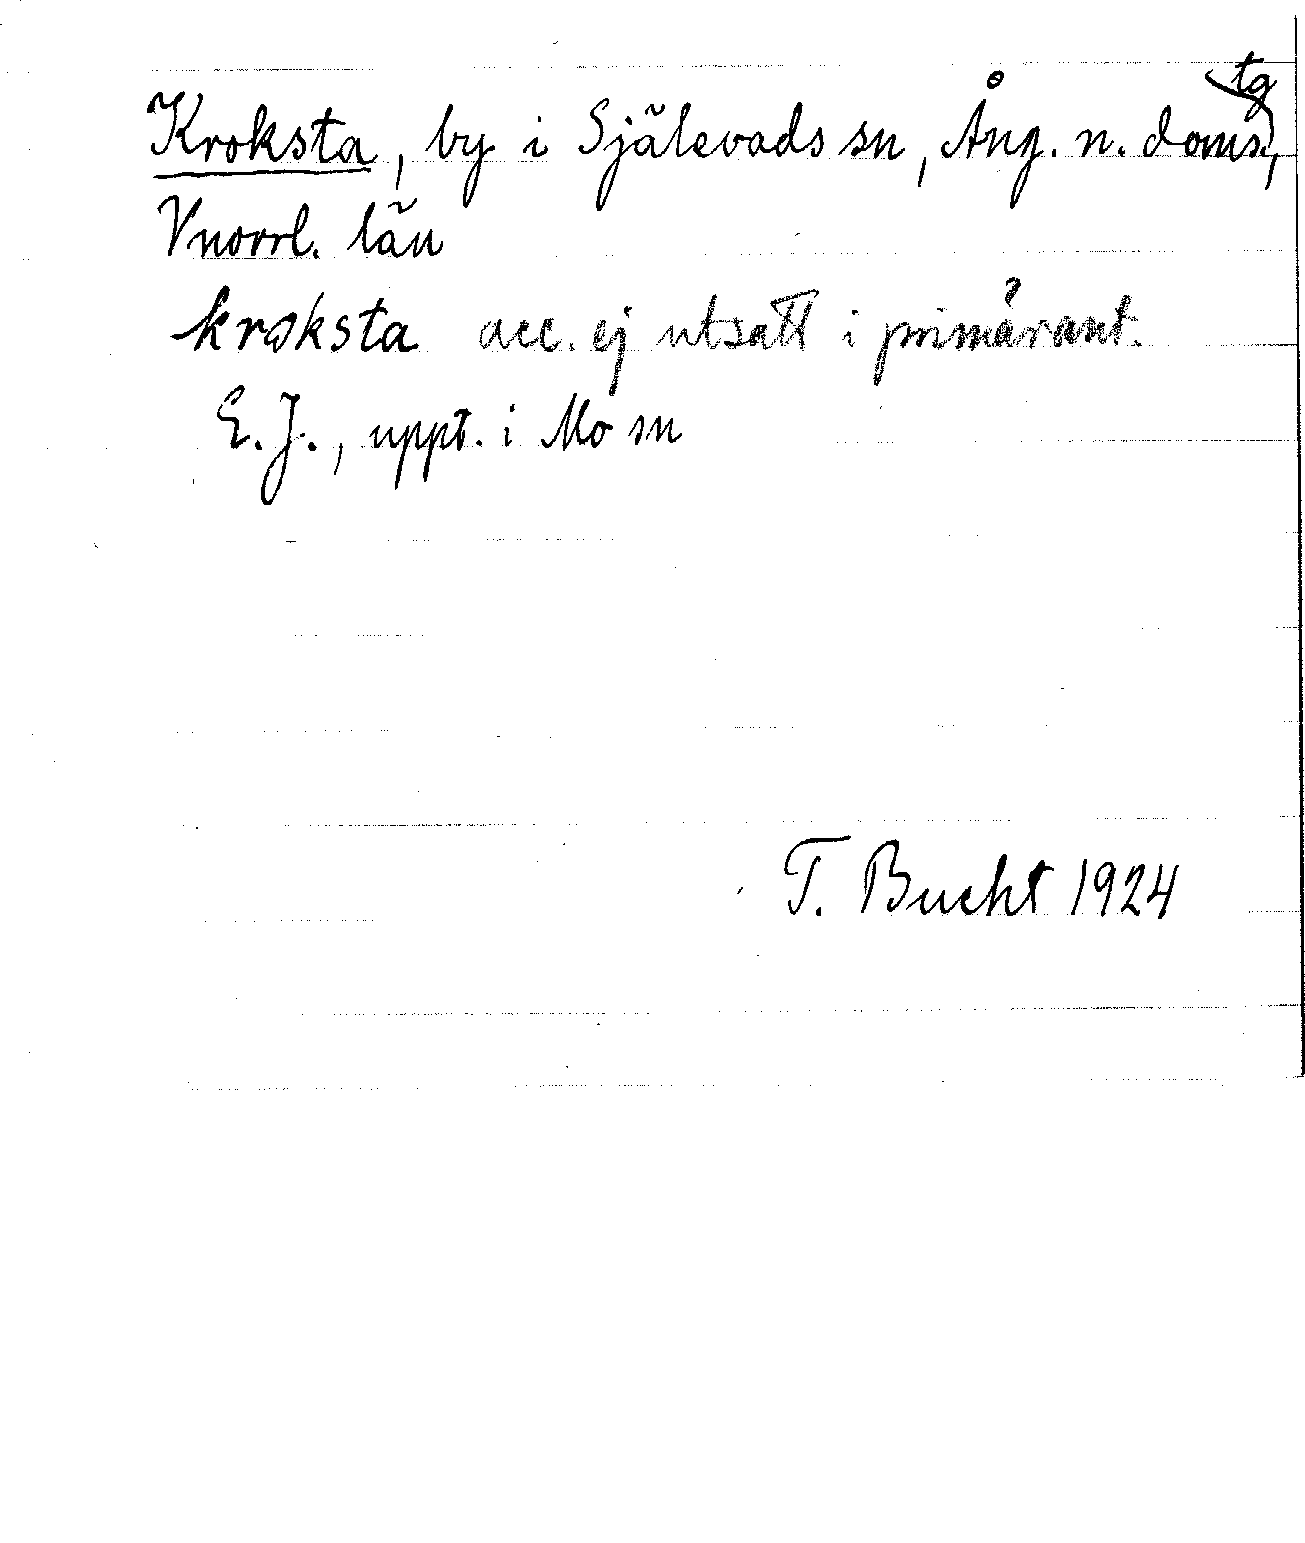 Kroksta, by i Själevads sn, Ång. n. domstg,
Vnorrl. län
kroksta acc. ej utsatt i primärant.
E. J., uppt. i Mo sn
T. Bucht 1924